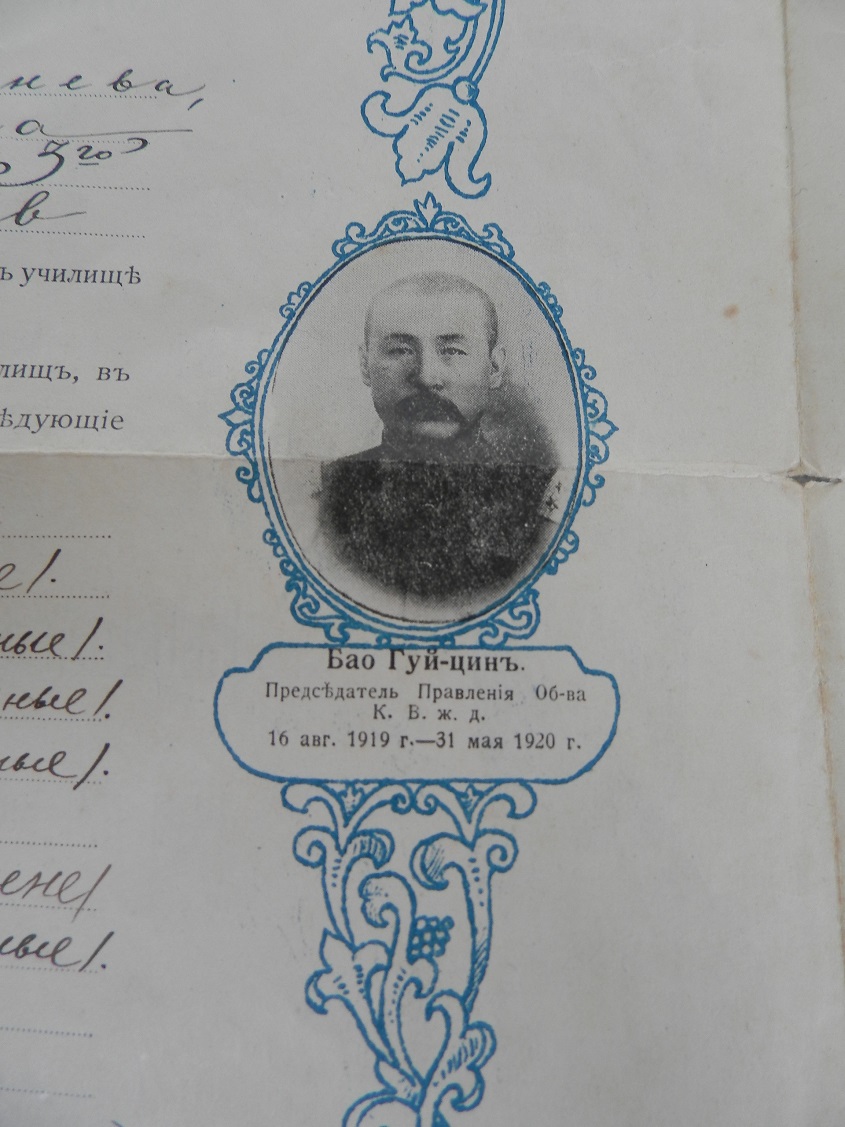 нева,
а
5го
в
ъ училищѣ
лищъ, въ
ѣдующіе
е/.
ные/.
ные/.
ные/.
ене/
ные/.
Бао Гуй-цинъ.
Предсѣдатель Правленія Об-ва
К. В. ж. д.
16 авг. 1919 г.—31 мая 1920 г.